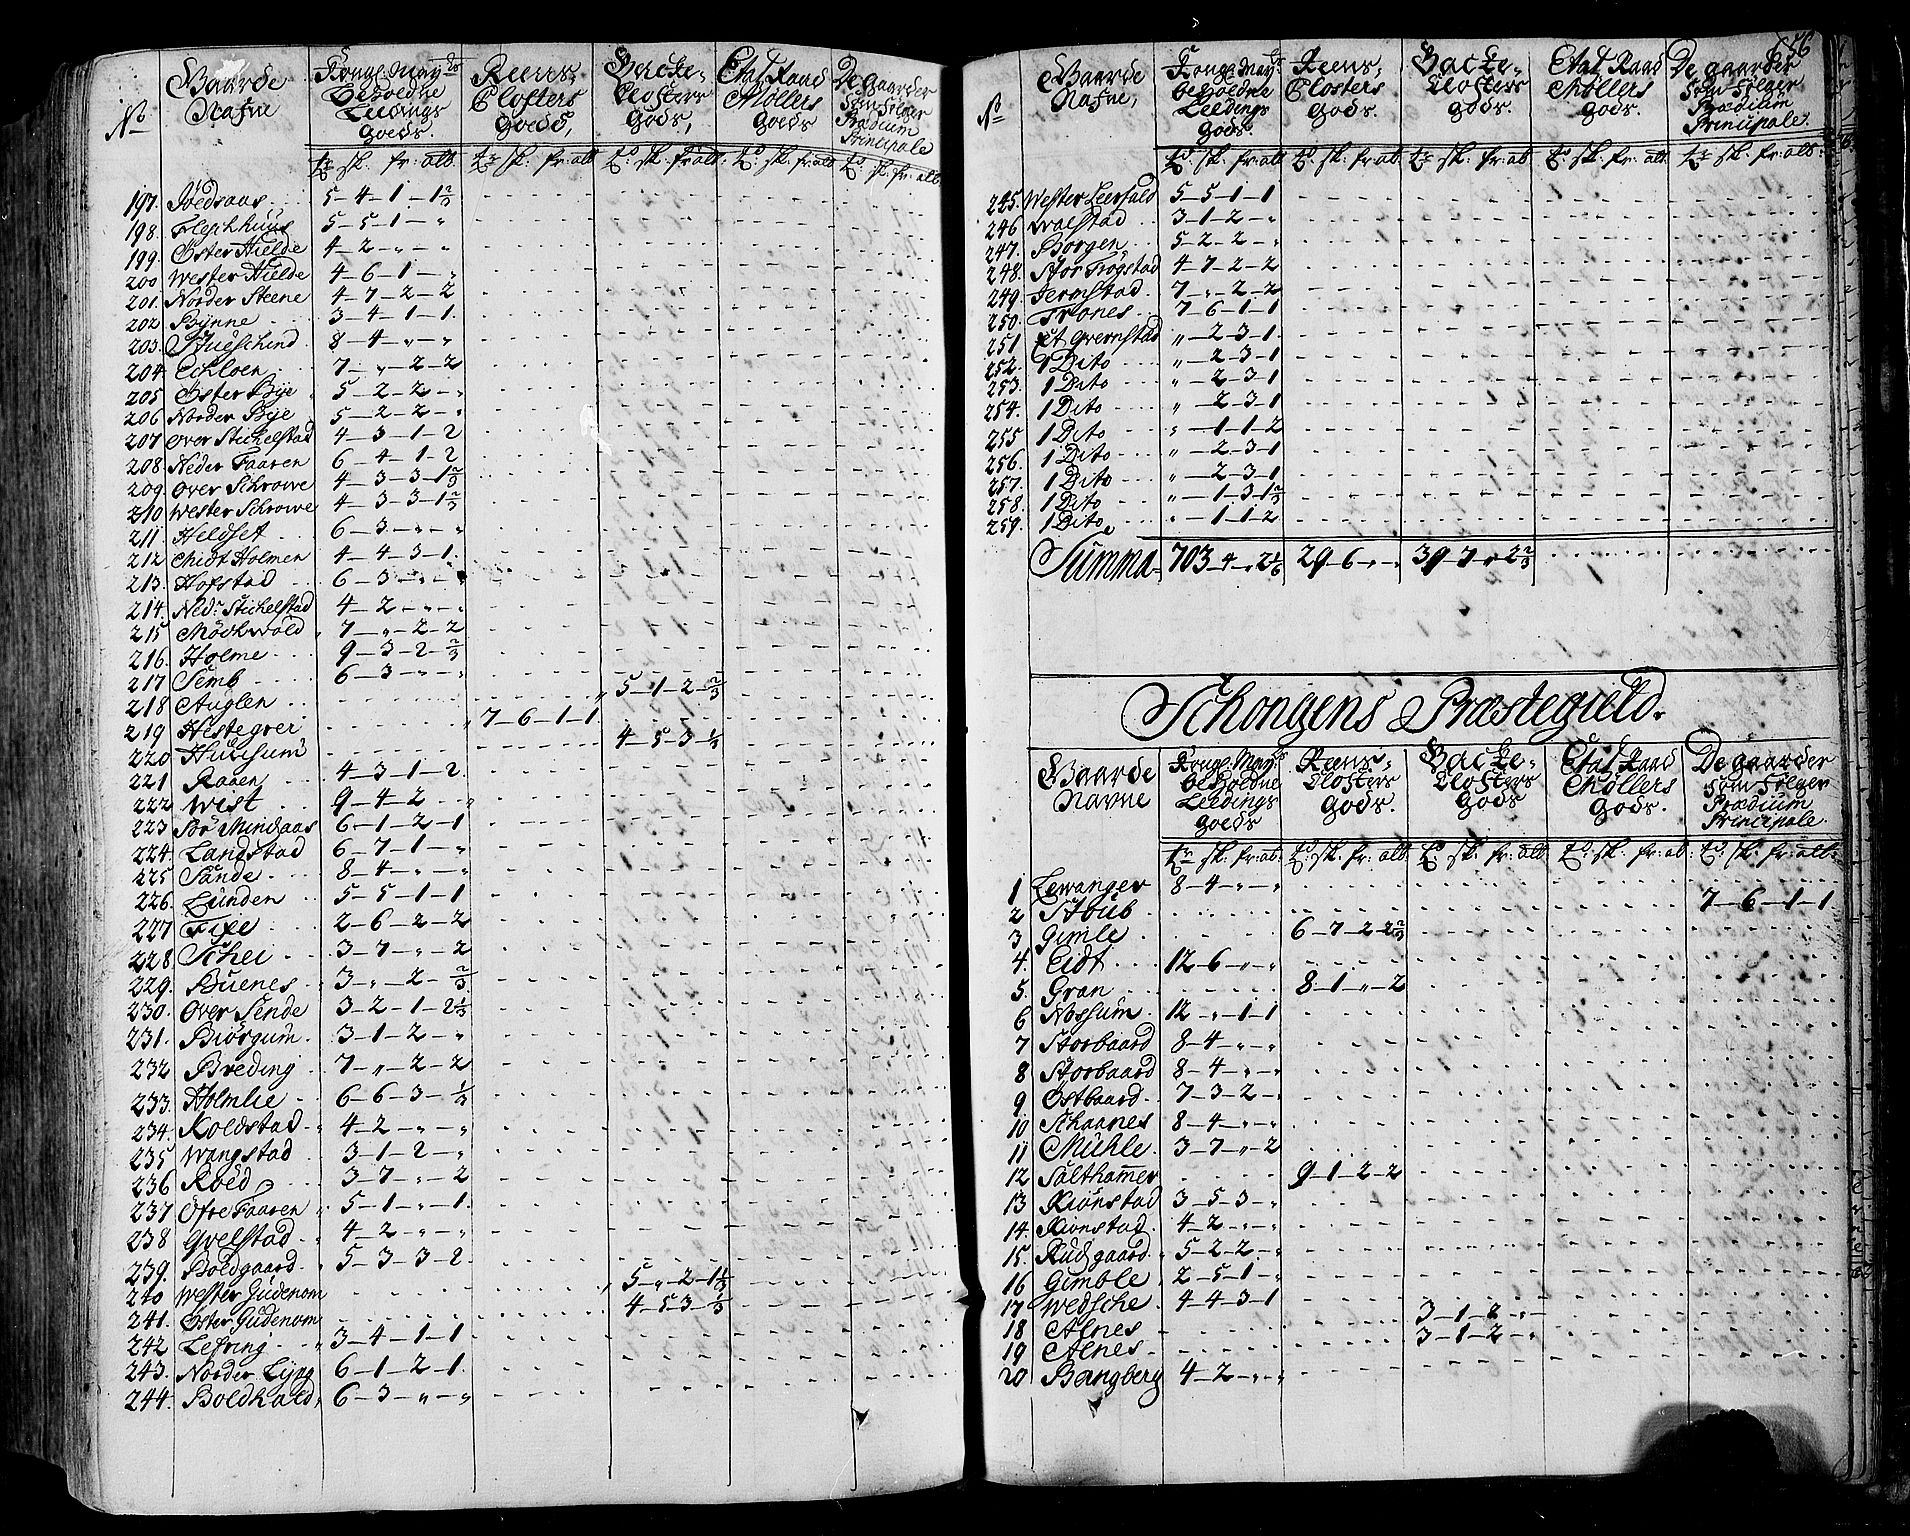 656
No Gaarde Nafne Kongl. May:ts Beholdne Leedings Goeds. Reens Closters Goeds, Backe Closters Gods, Etatz Raad Möllers Goeds De gaarder som følger Prædium Principale
197. 5-4-1-1 2/3
198. 5-5-1-"
199. Öster Hielde 4-2-"-"
200 Wester Hielde 4-6-1-"
201. Norder Steene 4-7-2-2
202 Bÿnne 3-4-1-1.
203. 8-4-"-"
204. Echloen 7-"-2-2
205 Öster Bÿe 5-2-2-"
206 Norder Bÿe 5-2-2-"
207 Over Stichelstad 4-3-1-2
208. Neder Faaren 6-4-1-2
209. Over Schrowe 4-3-3-1 2/3
210 Wester Schrowe 4-3-3-1 2/3
211. Heldset 6-3-"-"
212 Chidt Holmen 4-4-3-1.
213. Hofstad 6-3-"-"
214. Ned: Stichelstad 4-2-"-"
215 Möchwold 7-"-2-2
216. Holme 9-3-2-2/3
217 Semb 6-3-"-"
218 Auglen 5-1-2-2/3
219 Hestegrei 7-6-1-1
220 Hüssum 4-5-3-1/3
221 Raaen 4-3-1-2.
222 West 9-4-2-"
223 Bö Mindaas 6-1-2-1
224. Landstad 6-7-1-"
225 Sande 8-4-"-"
226. Lunden 5-5-1-1
227 2-6-2-2
228 Schei 3-7-"-2
229. Buenes 3-"-2-2/3
230. Over Sende 3-2-1-2 1/3
231. Biörgum 3-1-2-"
232 Breding 7-"-2-2
233. Holmlie 6-6-3-1/3
234. Koldstad 4-2-"-"
235 Wangstad 3-1-2-"
236 Röed 3-7-"-2
237 Öfre Faaren 5-1-"-1.
238 Gvelstad 4-2-"-"
239. Boldgaard 5-3-3-2
240 Wester Gudenom 5-"-2-1 1/3
241. Öster Gudenom 4-5-3-1/3
242 Lefring 3-4-1-1
243. Norder Lÿng 6-1-2-1.
244. Boldhald 6-3-"-"
No Gaarde Nafne, Kongl. May:ts beholdne Leedings Gods. Reens Closters Gods. Backe Closters gods. Etatz Raad Möllers Gods. De gaarder som følger Prædium Principale.
245. Wester Leersald 5-5-1-1
246 Walstad 3-1-2-"
247. Borgen 5-2-2-"
248. Stor Trogstad 4-7-2-2
249. Jermstad 7-"-2-2
250. Trones 7-6-1-1
251 Et Gvernstad "-2-3-1
252. 1 Dito "-2-3-1
253. 1 Dito "-2-3-1
254. 1 Dito "-2-3-1
255 1 Dito "-1-1-2
256. 1 Dito "-2-3-1
257. 1 Dito "-2-3-1
258. 1 Dito "-1-3-1 2/3
259. 1 Dito "-1-1-2
Summa 703-4-"-2 1/6 29-6-"-" 39-7-"-2 2/3
Schongens Præstegield.
Gaarde Navne Kongl. May:ts beholdne Leedings Goeds Reens Closters Gods. Backe Closters Gods Etatz Raad Möllers Gods. De gaarder som følger Prædium Principale
1 Lewanger 8-4-"-"
2 Stabüb 7-6-1-1
3 Gimle 6-7-2-2 2/3
4. Eidt 12-6-"-"
5. Gran 8-1-"-2
6 Nossum 12-"-1-1
7 Storbaard 8-4-"-"
8 Storbaard 8-4-"-"
9 Östbaard 7-3-2-"
10 Schaanes 8-4-"-"
11 Mühle 3-7-"-2
12 Salthamer 9-1-2-2
13. Kiönstad 3-5-3-"
14. Kionstad 4-2-"-"
15. Rudgaard 5-2-2-"
16 Gimble 2-5-1-"
17 Wedsche 4-4-3-1
18 Alnes 3-1-2-"
19 Alnes 3-1-2-"
20 Bangberg 4-2-"-"